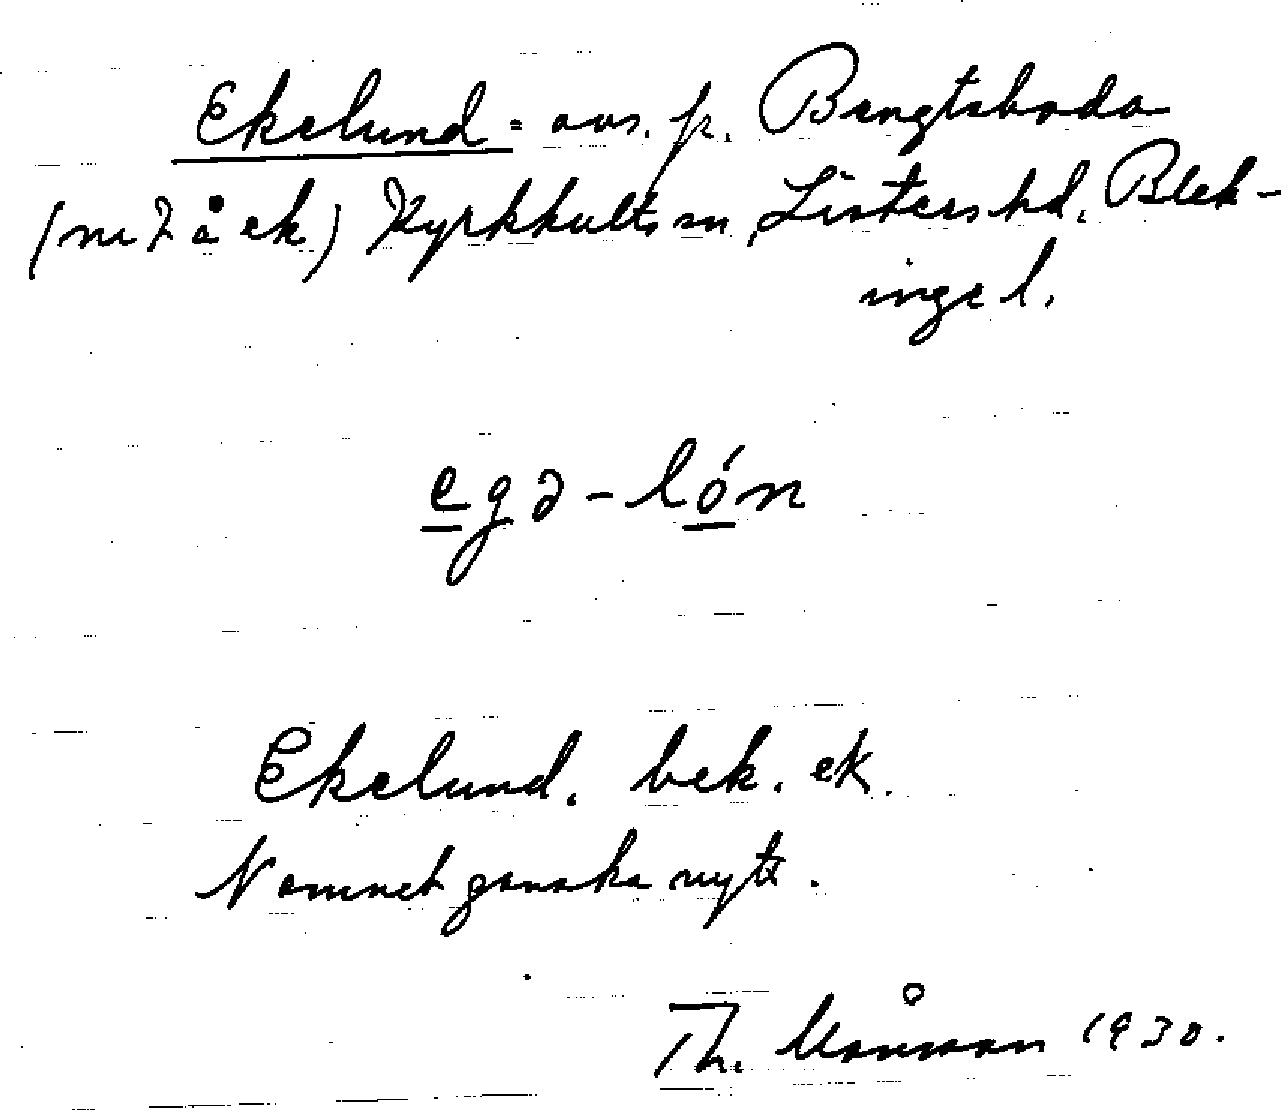 Ekelund = avs. fr. Bengtsboda
(nr 7 å ek.) Kyrkhults sn, Listers hd. Blek-
inge l.
egə-lón
Ekelund. bek. ek.
Namnet ganska nytt.
Th. Månsson 1930.